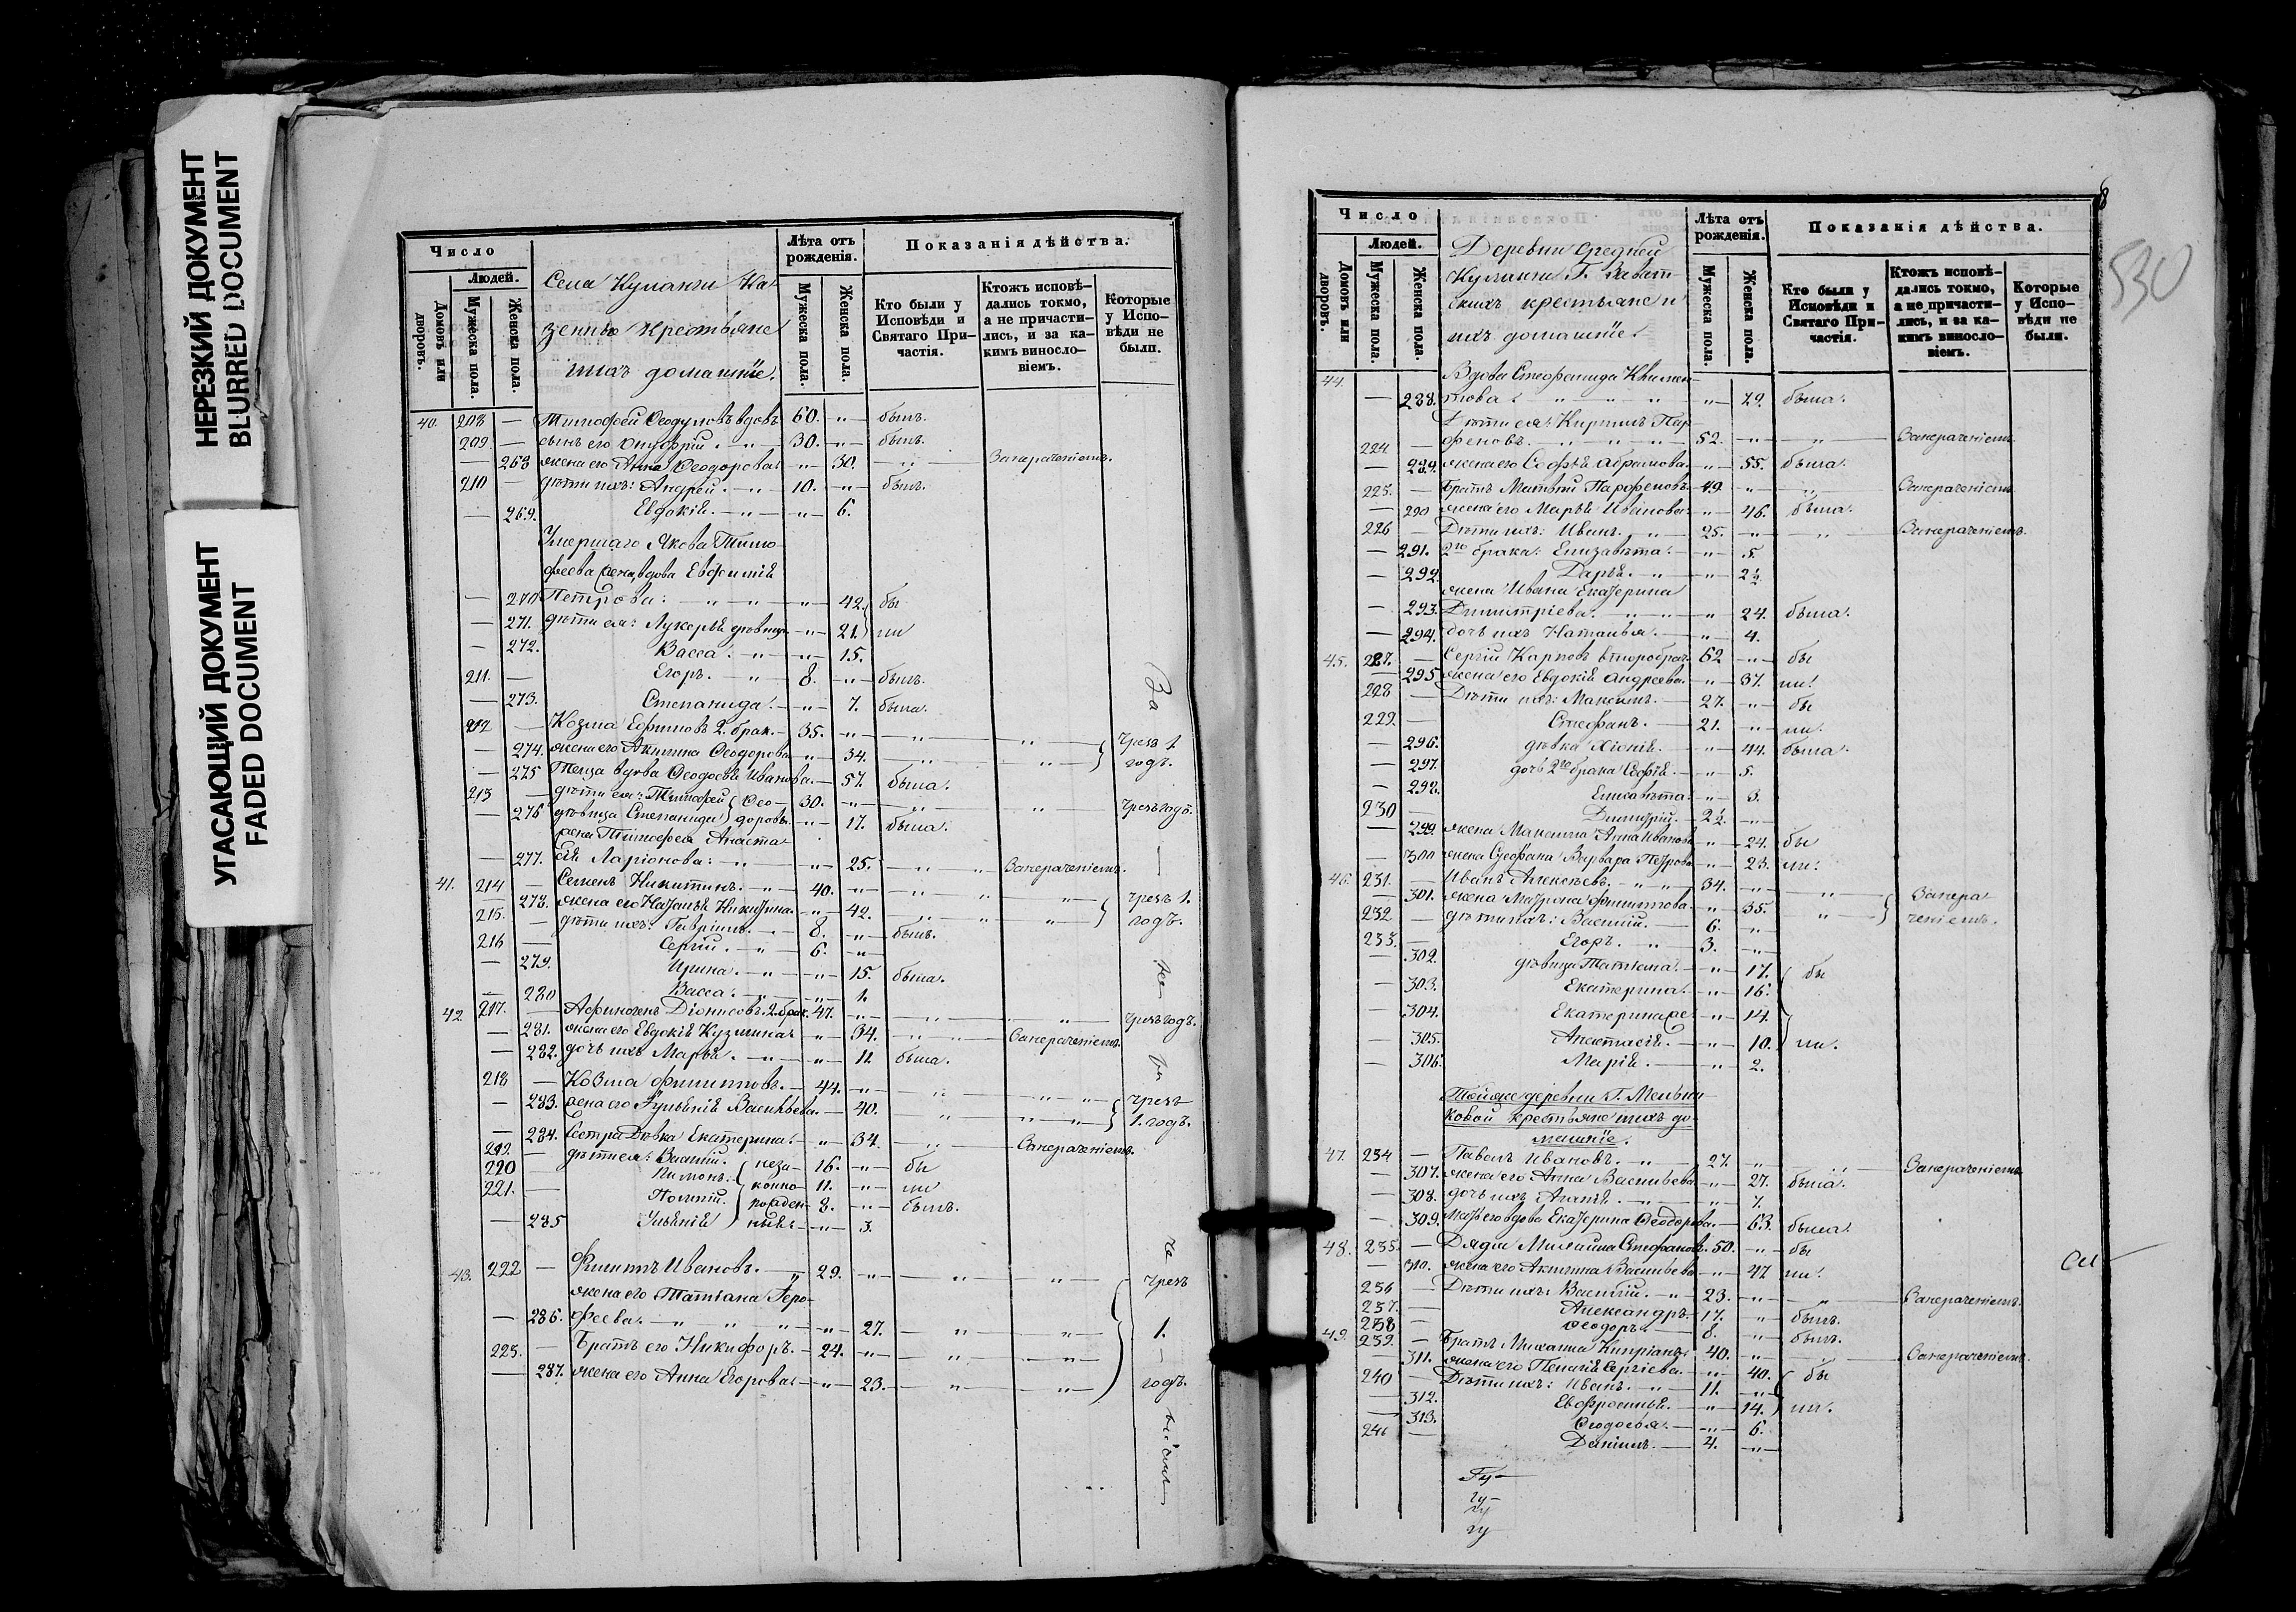 НЕРЕЗКИЙ ДОКУМЕНТ
BLURRED DOCUMENT
УГАСАЮЩИЙ ДОКУМЕНТ
FADED DOCUMENT
Число
Людей.
Домовъ или дворовъ.
Мужеска пола.
Женска пола.
Села Куланги Ка-
зенные крестьяне
и ихъ домашніе.
Лѣта отъ рожденія.
Мужеска пола.
Женска пола.
Показанія дѣйства.
Кто были у Исповѣди и Святаго Причастія.
Ктожъ исповѣдались токмо, а не причастились, и за какимъ винословіемъ.
Которые у Исповѣди не были.
40. 208 — Тимофей Ѳедуловъ вдовъ 60. былъ.
209. — сынъ его Онуфрій 30. былъ.
— 268 жена его Анна Ѳеодорова 30. Занераченіемъ.
210 — дѣти ихъ: Андрей 10. былъ.
— 269. Евдокія 6.
Умершаго Якова Тимо-
феева жена, вдова Евфимія
— 270 Петрова: 42. бы
— 271. дѣти ея: Лукерья дѣвица 21. ли
— 272. Васса 15.
211. — Егоръ. 8. былъ.
— 273. Степанида 7. была.
212 — Козма Ефимовъ 2. брак. 35. Чрезъ 1.
— 274. жена его Акилина Ѳеодорова 34. годъ.
— 275 Теща вдова Ѳеодосья Иванова. 57. была.
213 — дѣти ея: Тимофей Ѳео- 30. чрезъ годъ.
— 276 дѣвица Степанида доровы 17. была.
жена Тимофея Анаста-
— 277. сія Ларіонова: 25. Занераченіемъ.
41. 214 — Семенъ Никитинъ. 40. чрезъ 1.
— 278. жена его Наталья Никитина. 42. годъ.
215. — дѣти ихъ: Гавріилъ. 8. былъ.
216 — Сергій. 6.
— 279. Ирина. 15. была.
— 280 Васса. 1.
42. 217. — Афиногенъ Діонисовъ. 2. брак. 47. чрезъ годъ.
— 281. жена его Евдокія Кузмина 34. Занераченіемъ.
— 282. дочь ихъ Марья. 11. была.
218 — Козма Филиповъ. 44. чрезъ
— 283. жена его Ульянія Васильева. 40. 1. годъ.
— 284. Сестра Дѣвка Екатерина. 34. Занераченіемъ.
219. — дѣти ея: Василій. неза- 16. бы
220 — Филимонъ. конно- 11. ли
221. — рожден- 8. былъ.
— 285 Ульянія ные 3.
43. 222 — Филипъ Ивановъ. 29. чрезъ
жена его Татіана Геро-
— 286. феева. 27. 1.
223. — Братъ его Никифоръ. 24.
— 287. жена его Анна Егорова. 23. годъ.
530
Число
Людей.
Домовъ или дворовъ.
Мужеска пола.
Женска пола.
Деревни Средней
Куланги Г.
крестьяне и
ихъ домашніе.
Лѣта отъ рожденія.
Мужеска пола.
Женска пола.
Показанія дѣйства.
Кто были у Исповѣди и Святаго Причастія.
Ктожъ исповѣдались токмо, а не причастились, и за какимъ винословіемъ.
Которые у Исповѣди не были.
44. Вдова Стефанида Климен-
— 288. това. 79. была.
Дѣти ея: Кирилъ Пар-
224 — феновъ. 52. Занераченіемъ.
— 289. жена его Софья Абрамова. 55. была.
225. — Братъ Матвѣй Парфеновъ. 49. Занераченіемъ
— 290 жена его Марья Иванова. 46. была.
226 — Дѣти ихъ: Иванъ. 25. Занераченіемъ.
— 291. 2го брака: Елизавета. 5.
— 292. Дарья. 2½
жена Ивана Екатерина
— 293. Димитріева. 24. была.
— 294. дочь ихъ Наталья. 4.
45. 227. — Сергій Карповъ второбрач. 62 бы
— 295 жена его Евдокія Андреева. 37. ли.
228 — Дѣти ихъ: Максимъ. 27. бы
229. — Стефанъ. 21. ли.
— 296. дѣвка Хіонія. 44. была.
— 297. дочь 2го брака Софія. 5.
— 298. Елизавета. 3.
230 — Димитрій. 2½.
— 299. жена Максима Анна Иванова 24. бы
— 300 жена Стефана Варвара Петрова 23. ли.
46. 231. — Иванъ Алексѣевъ. 34. Занера
— 301. жена Матрона Филиппова. 35. ченіемъ.
232. — дѣти ихъ: Василій. 6.
233. — Егоръ. 3.
— 302. дѣвица Татіана. 17. бы
— 303. Екатерина. 16.
— 304. Екатерина же 14.
— 305. Анастасія. 10. ли.
— 306. Марія. 2.
Тойже деревни Г. Мельни-
ковой крестьяне и ихъ до-
машніе.
47. 234 — Павелъ Ивановъ. 27. Занераченіемъ
— 307. жена его Анна Васильева 27. была.
— 308. дочь ихъ Агафья. 7.
— 309. мать его вдова Екатерина Ѳеодорова. 63. была.
48. 235. — Дядя Михаила Стефановъ. 50. бы
— 310. жена его Акилина Васильева 47 ли.
236 — Дѣти ихъ: Василій. 23. Занераченіемъ.
237. — Александръ. 17. былъ.
238 — Ѳеодоръ. 8. былъ.
49. 239. — Братъ Михаила Кипріанъ. 40. Занераченіемъ.
— 311. жена его Пелагія Сергіева. 40. бы
240 — Дѣти ихъ: Иванъ. 11.
— 312. Евфросинья. 14. ли.
— 313. Ѳеодосья. 6.
241 — Даніилъ. 4.